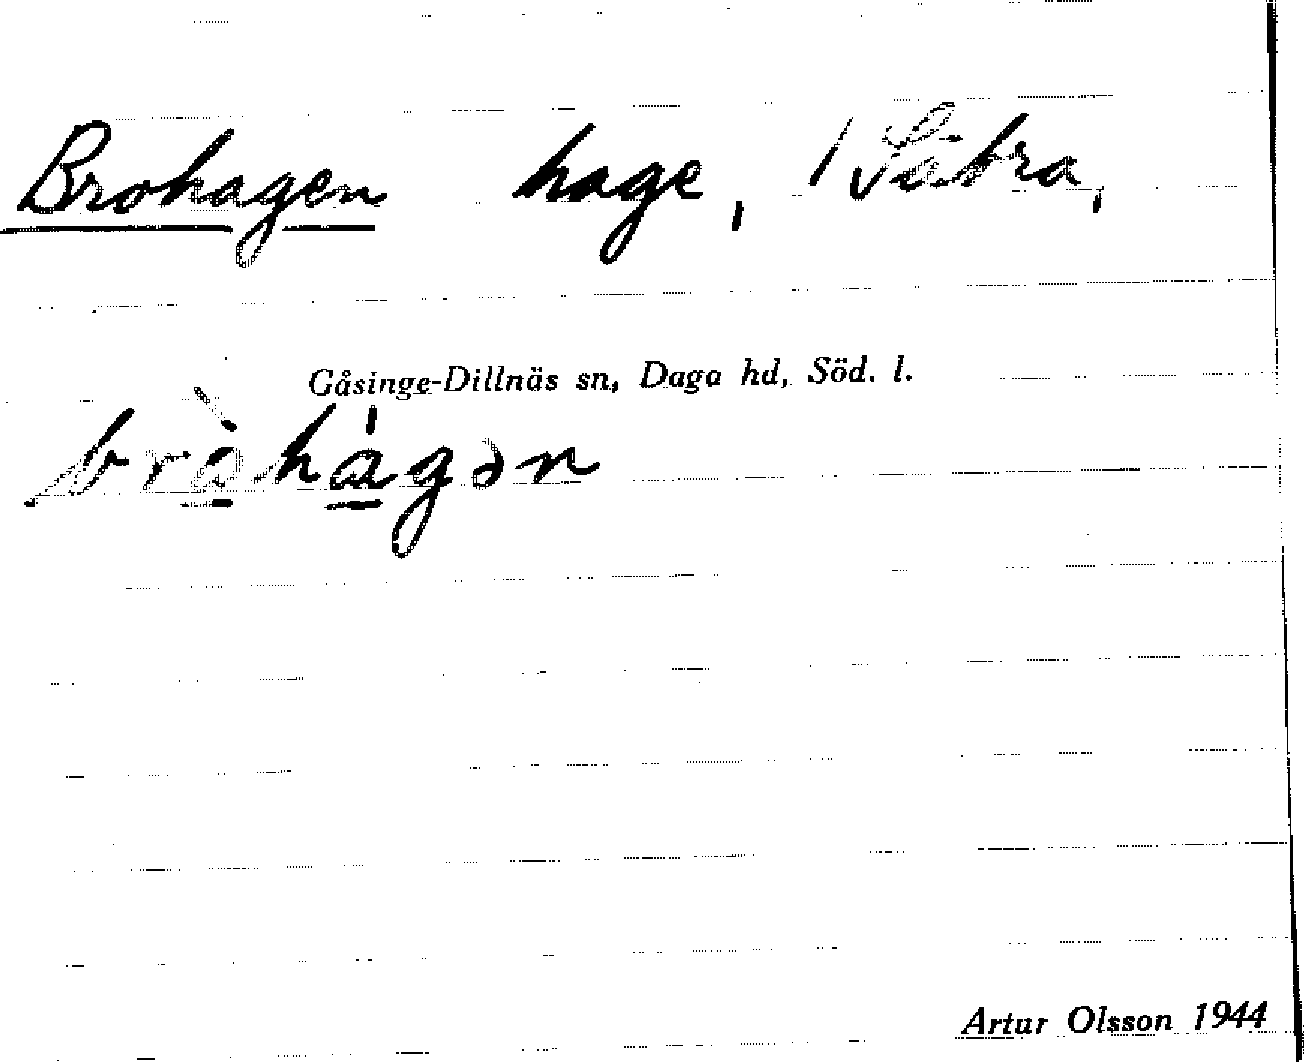 Brohagen hage, 1 Sätra,
Gåsinge-Dillnäs sn, Daga hd, Söd. l.
bròhágən
Artur Olsson 1944